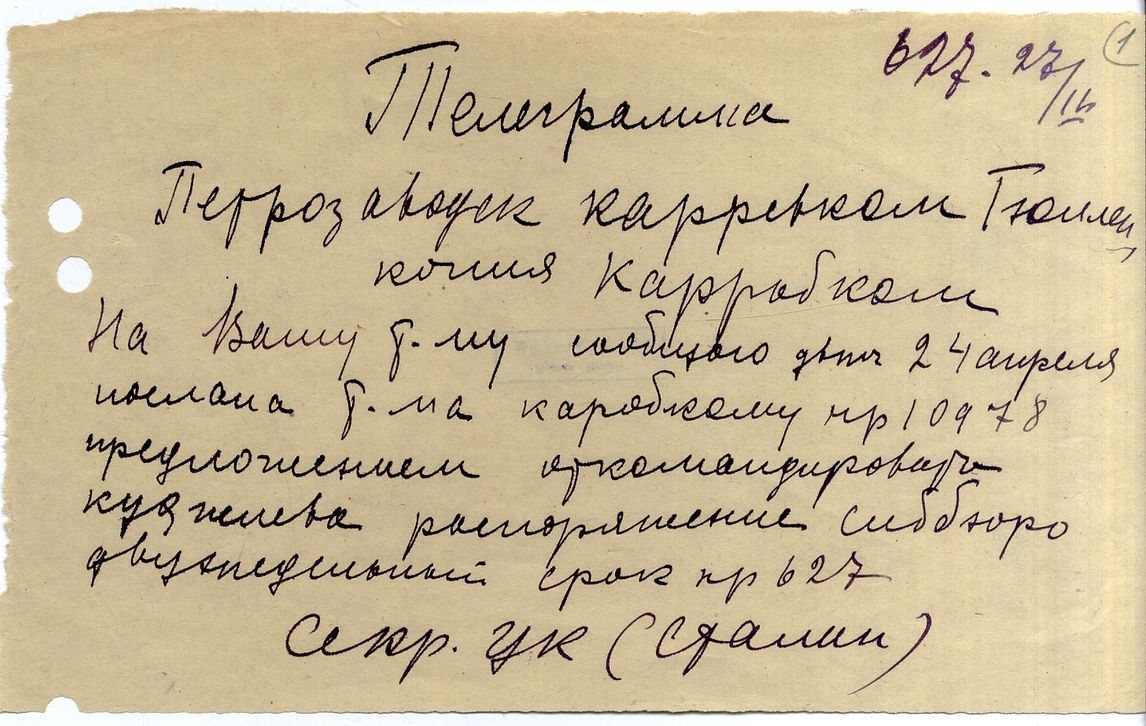 (1
627. 27/IV
Телеграмма
Петрозаводск карревком Гюллен,
копия Карробком
На Вашу т.му сообщаю двтч 24 апреля
послана т.ма каробкому нр 10978
предложением откомандировать
куджиева распоряжение сиббюро
двухнедельный срок нр 627
Секр. ЦК (Сталин)